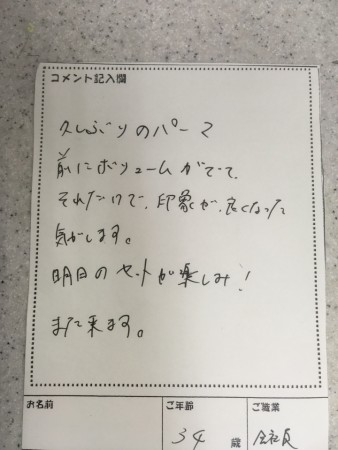 コメント記入欄
久しぶりのパーマ
前にボリュームがでて、
それだけで、印象が、良くなった
気がします。
明日のセットが楽しみ！
また来ます。
お名前
ご年齢
ご職業
34 歳
会社員